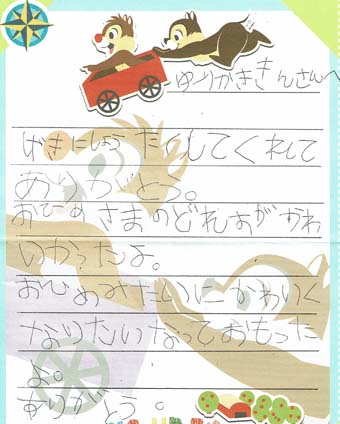 ゆりかききんさんへ
げきにしょうたいしてくれて
ありがとう。
おひめさまのどれすがかわ
いかったよ。
おひめみたいにかわいく
なりたいなっておもった
よ。
ありがとう。